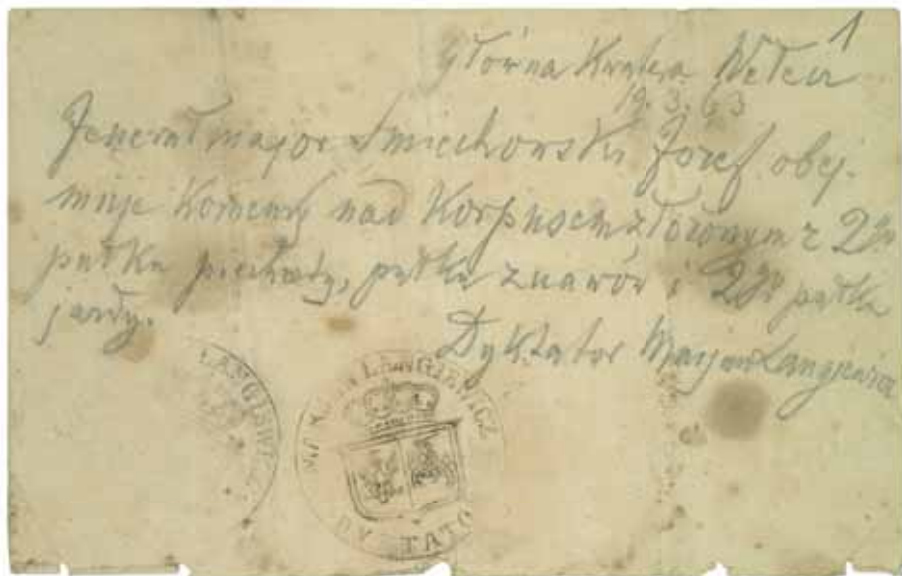 1
Główna Kwatera Wełecz
19. 3. 63
Jenerał major Śmiechowski Józef obej-
muje komendę nad Korpusem złożonym z 2go
pułku piechoty, pułku żuawów i 2go pułku
jazdy.
Dyktator Maryan Langiewicz
LANGIEWICZ
MARYAN LANGIEWICZ
DYKTATOR